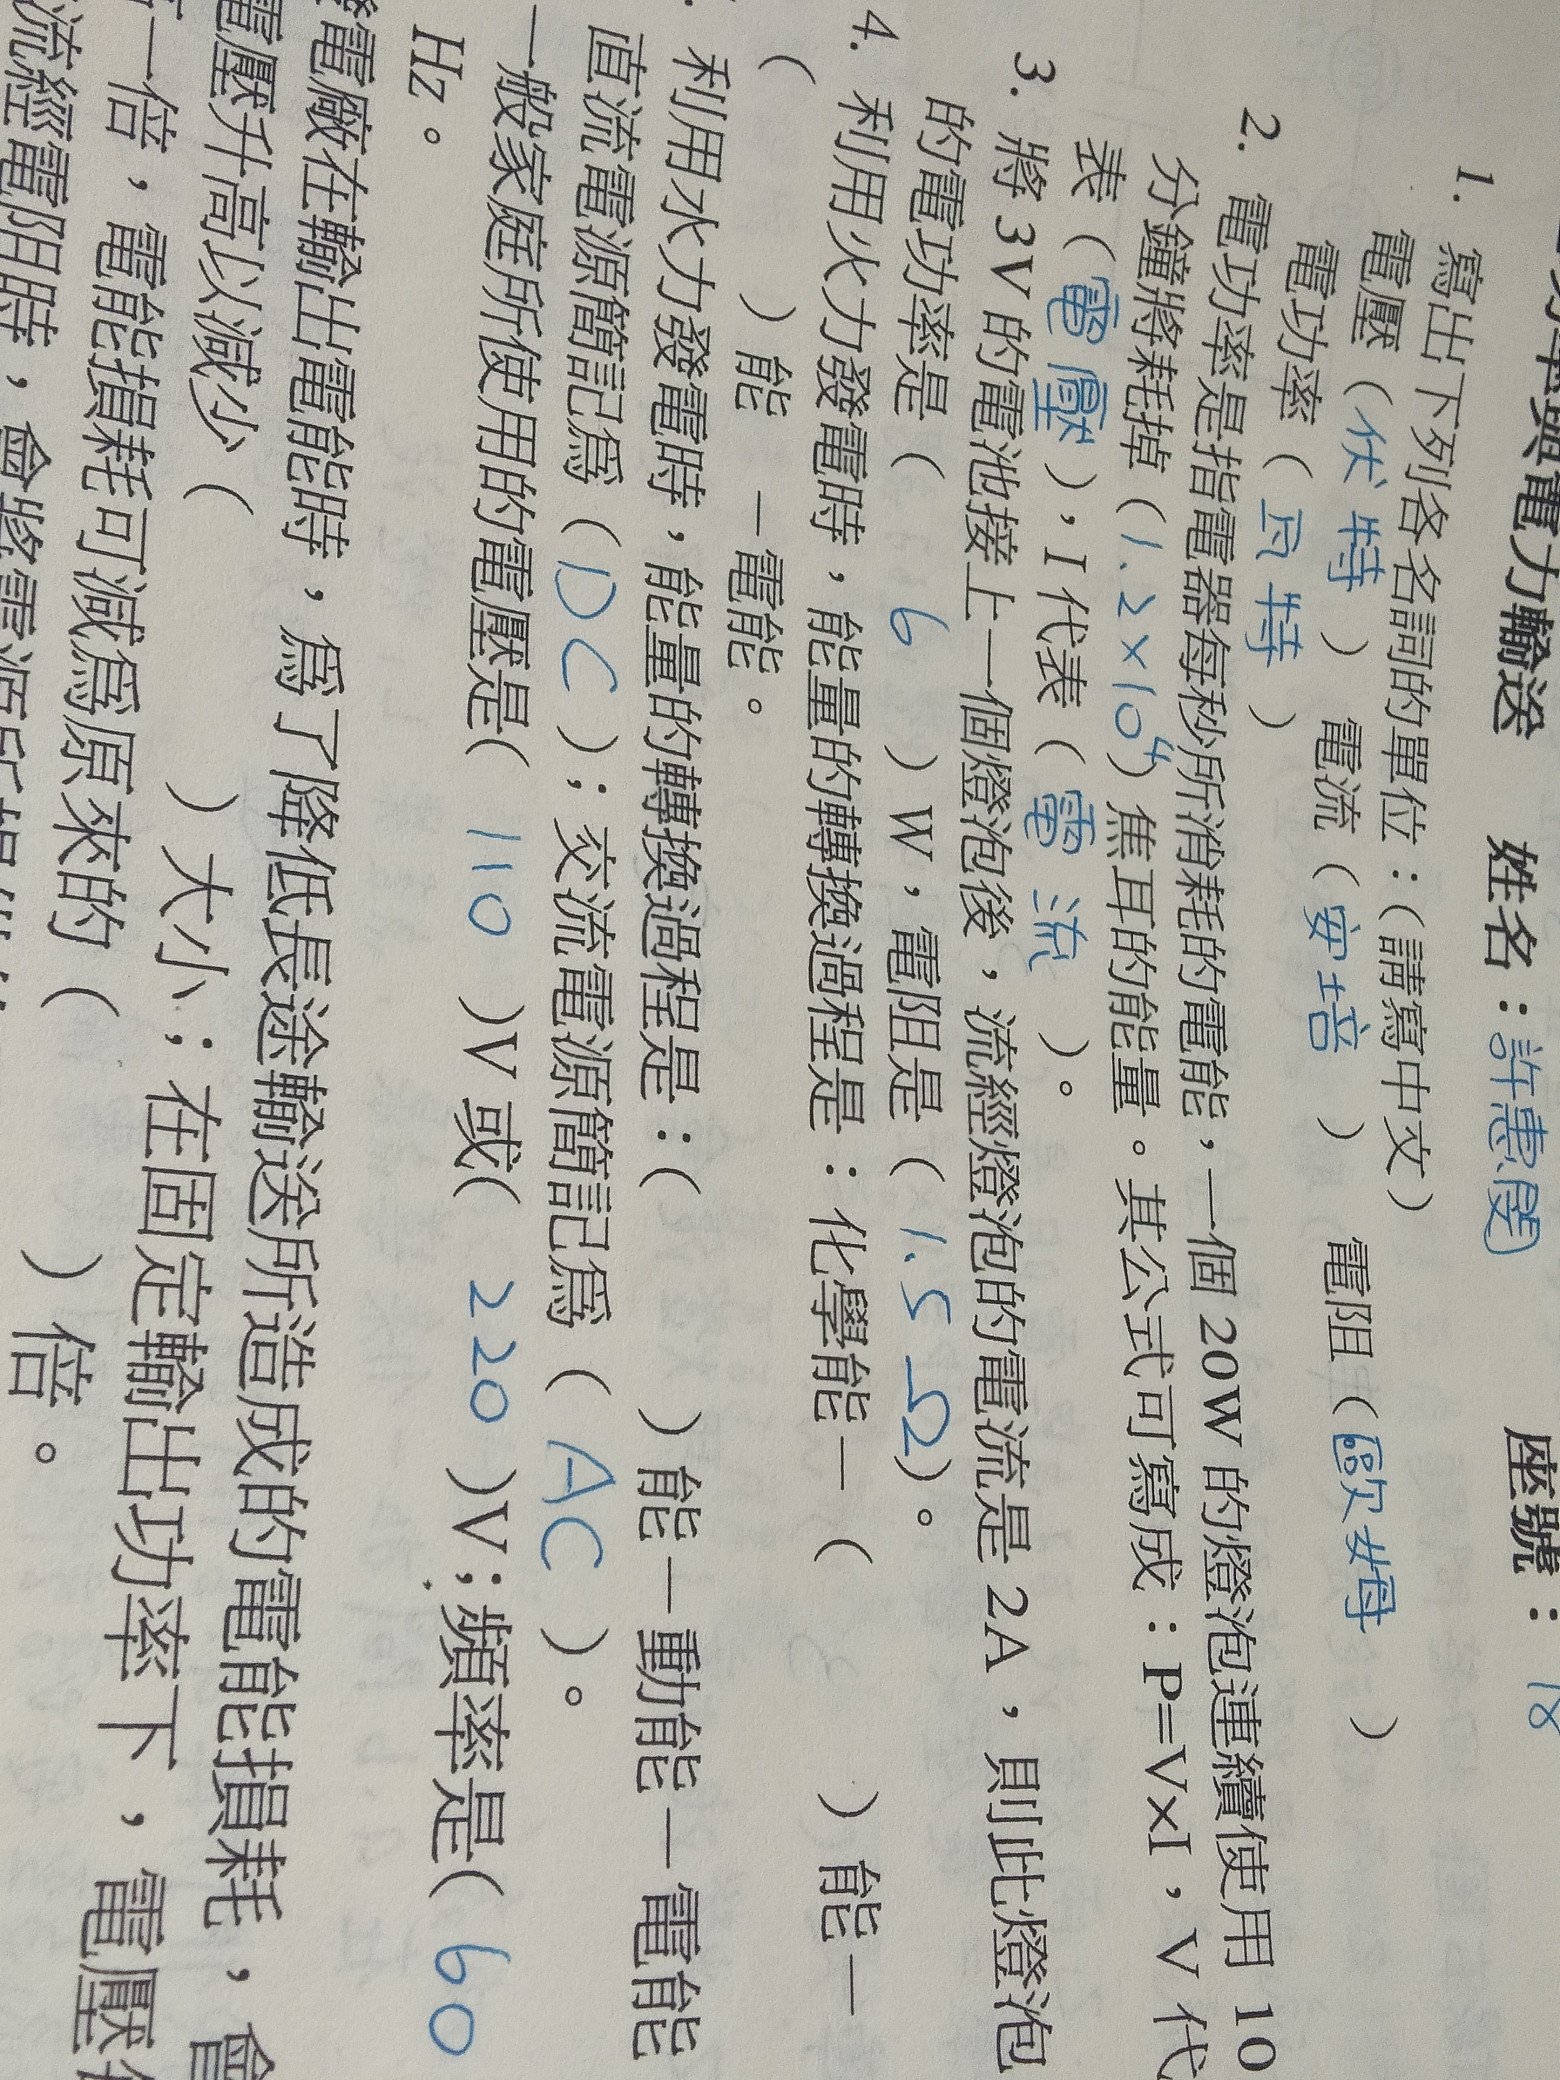 電力輸送 姓名：許惠閔 座號：18
1. 寫出下列各名詞的單位：(請寫中文)
電壓（伏特） 電流（安培） 電阻（歐姆）
電功率（瓦特）
2. 電功率是指電器每秒所消耗的電能，一個 20W 的燈泡連續使用 10
分鐘將耗掉（1.2×10⁴）焦耳的能量。其公式可寫成：P=V×I，V 代
表（電壓），I 代表（電流）。
3. 將 3V 的電池接上一個燈泡後，流經燈泡的電流是 2A，則此燈泡
的電功率是（ 6 ）W，電阻是（1.5Ω）。
4. 利用火力發電時，能量的轉換過程是：化學能－（ ）能－
（ ）能－電能。
利用水力發電時，能量的轉換過程是：（ ）能－動能－電能
直流電源簡記為（DC）；交流電源簡記為（AC）。
一般家庭所使用的電壓是( 110 )V 或( 220 )V；頻率是( 60
Hz。
電廠在輸出電能時，為了降低長途輸送所造成的電能損耗，會
電壓升高以減少（ ）大小；在固定輸出功率下，電壓
一倍，電能損耗可減為原來的（ ）倍。
流經電阻時，會將電源所